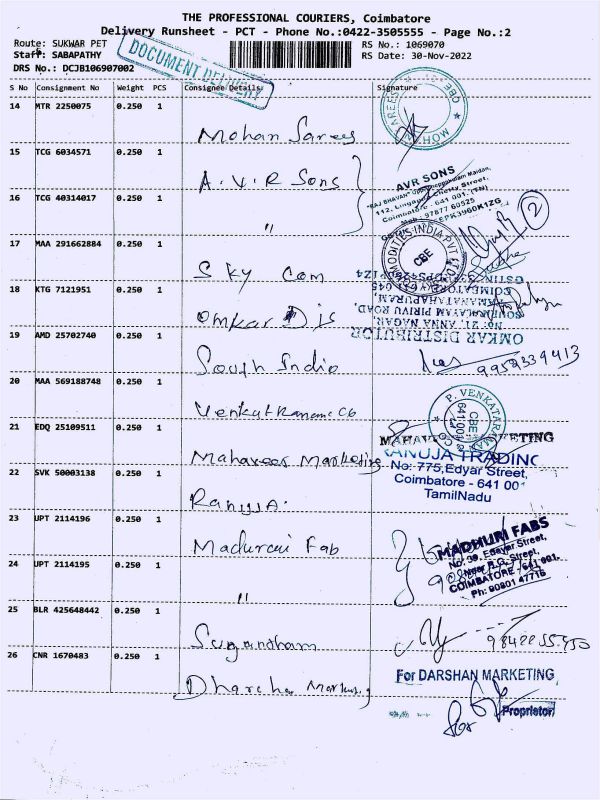 THE PROFESSIONAL COURIERS, Coimbatore
Delivery Runsheet - PCT - Phone No.:0422-3505555 - Page No.:2
Route: SUKWAR PET
RS No.: 1069070
Staff: SABAPATHY
RS Date: 30-Nov-2022
DRS No.: DCJB106907002
DOCUMENT DELIVERY
S No Consignment No Weight PCS Consignee Details Signature
14 MTR 2250075 0.250 1
Mohan Sarees
15 TCG 6034571 0.250 1
A.V.R Sons
AVR SONS
112, Lingappa Chetty Street,
Coimbatore - 641 001. (TN)
16 TCG 40314017 0.250 1
"
2
17 MAA 291662884 0.250 1
Sky Com
CBE
18 KTG 7121951 0.250 1
Omkar Dis
No: 21, ANNA NAGAR,
OMKAR DISTRIBUTOR
19 AMD 25702740 0.250 1
South India
20 MAA 569188748 0.250 1
P. VENKATARAMAN
CBE
21 EDQ 25109511 0.250 1
Mahaveer Marketing
22 SVK 50003138 0.250 1
No: 775, Edyar Street,
Coimbatore - 641 001
TamilNadu
23 UPT 2114196 0.250 1
Madurai Fab
MADHURI FABS
No. 39, Edayar Street,
Near R.G. Street,
COIMBATORE - 641 001.
Ph: 90801 47716
24 UPT 2114195 0.250 1
"
25 BLR 425648442 0.250 1
Sugandham
26 CNR 1670483 0.250 1
For DARSHAN MARKETING
Proprietor